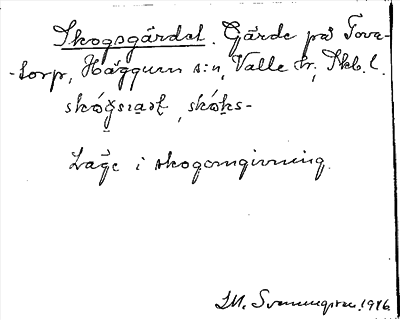 Skogsgärdet. Gärde på Tova-
torp, Häggum s:n, Valle hr, Skb. l.
skóǥsɪaʒt, skóks-
Läge i skogomgivning.
IM. Svennungsson. 1916.